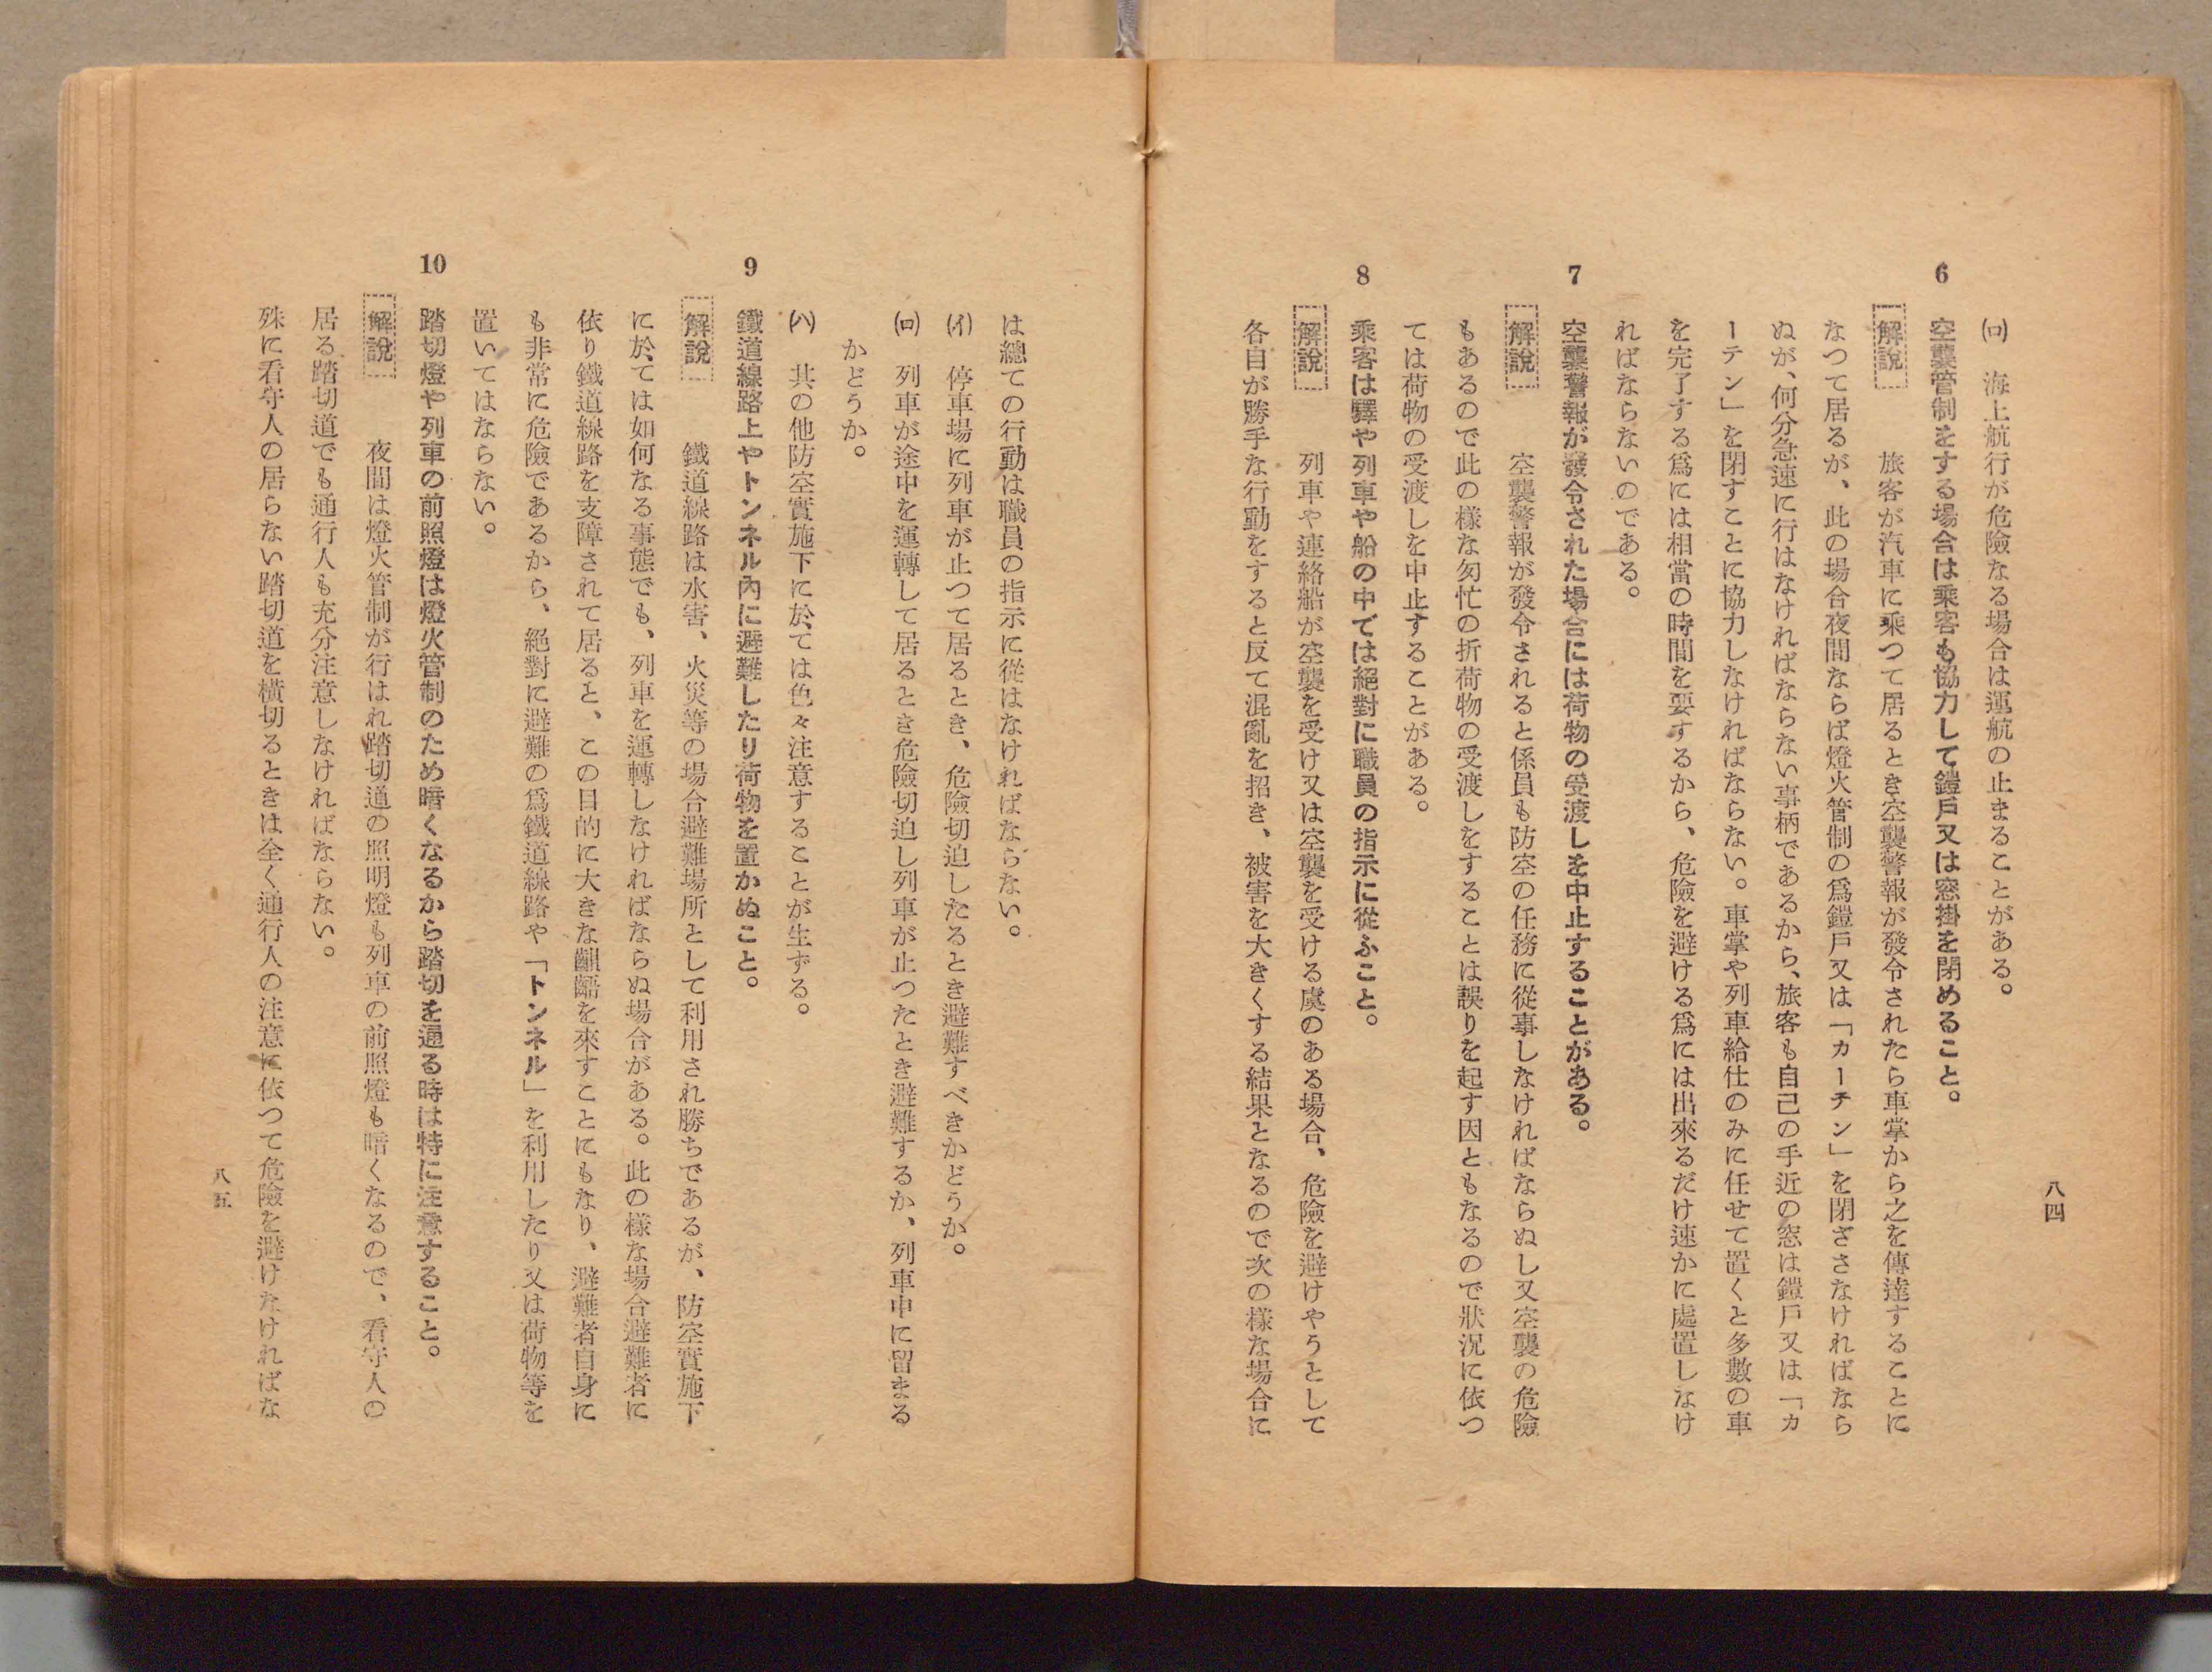 八四
(ロ)　海上航行が危險なる場合は運航の止まることがある。
6　空襲管制をする場合は乘客も協力して鎧戶又は窓掛を閉めること。
解說　旅客が汽車に乘つて居るとき空襲警報が發令されたら車掌から之を傳達することに
なつて居るが、此の場合夜間ならば燈火管制の爲鎧戶又は「カーテン」を閉ざさなければなら
ぬが、何分急速に行はなければならない事柄であるから、旅客も自己の手近の窓は鎧戶又は「カ
ーテン」を閉すことに協力しなければならない。車掌や列車給仕のみに任せて置くと多數の車
を完了する爲には相當の時間を要するから、危險を避ける爲には出來るだけ速かに處置しなけ
ればならないのである。
7　空襲警報が發令された場合には荷物の受渡しを中止することがある。
解說　空襲警報が發令されると係員も防空の任務に從事しなければならぬし又空襲の危險
もあるので此の樣な匆忙の折荷物の受渡しをすることは誤りを起す因ともなるので狀況に依つ
ては荷物の受渡しを中止することがある。
8　乘客は驛や列車や船の中では絕對に職員の指示に從ふこと。
解說　列車や連絡船が空襲を受け又は空襲を受ける虞のある場合、危險を避けやうとして
各自が勝手な行動をすると反て混亂を招き、被害を大きくする結果となるので次の樣な場合に
は總ての行動は職員の指示に從はなければならない。
(イ)　停車場に列車が止つて居るとき、危險切迫したるとき避難すべきかどうか。
(ロ)　列車が途中を運轉して居るとき危險切迫し列車が止つたとき避難するか、列車中に留まる
かどうか。
(ハ)　其の他防空實施下に於ては色々注意することが生ずる。
9　鐵道線路上やトンネル內に避難したり荷物を置かぬこと。
解說　鐵道線路は水害、火災等の場合避難場所として利用され勝ちであるが、防空實施下
に於ては如何なる事態でも、列車を運轉しなければならぬ場合がある。此の樣な場合避難者に
依り鐵道線路を支障されて居ると、この目的に大きな齟齬を來すことにもなり、避難者自身に
も非常に危險であるから、絕對に避難の爲鐵道線路や「トンネル」を利用したり又は荷物等を
置いてはならない。
10　踏切燈や列車の前照燈は燈火管制のため暗くなるから踏切を通る時は特に注意すること。
解說　夜間は燈火管制が行はれ踏切道の照明燈も列車の前照燈も暗くなるので、看守人の
居る踏切道でも通行人も充分注意しなければならない。
殊に看守人の居らない踏切道を橫切るときは全く通行人の注意に依つて危險を避けなければな
八五